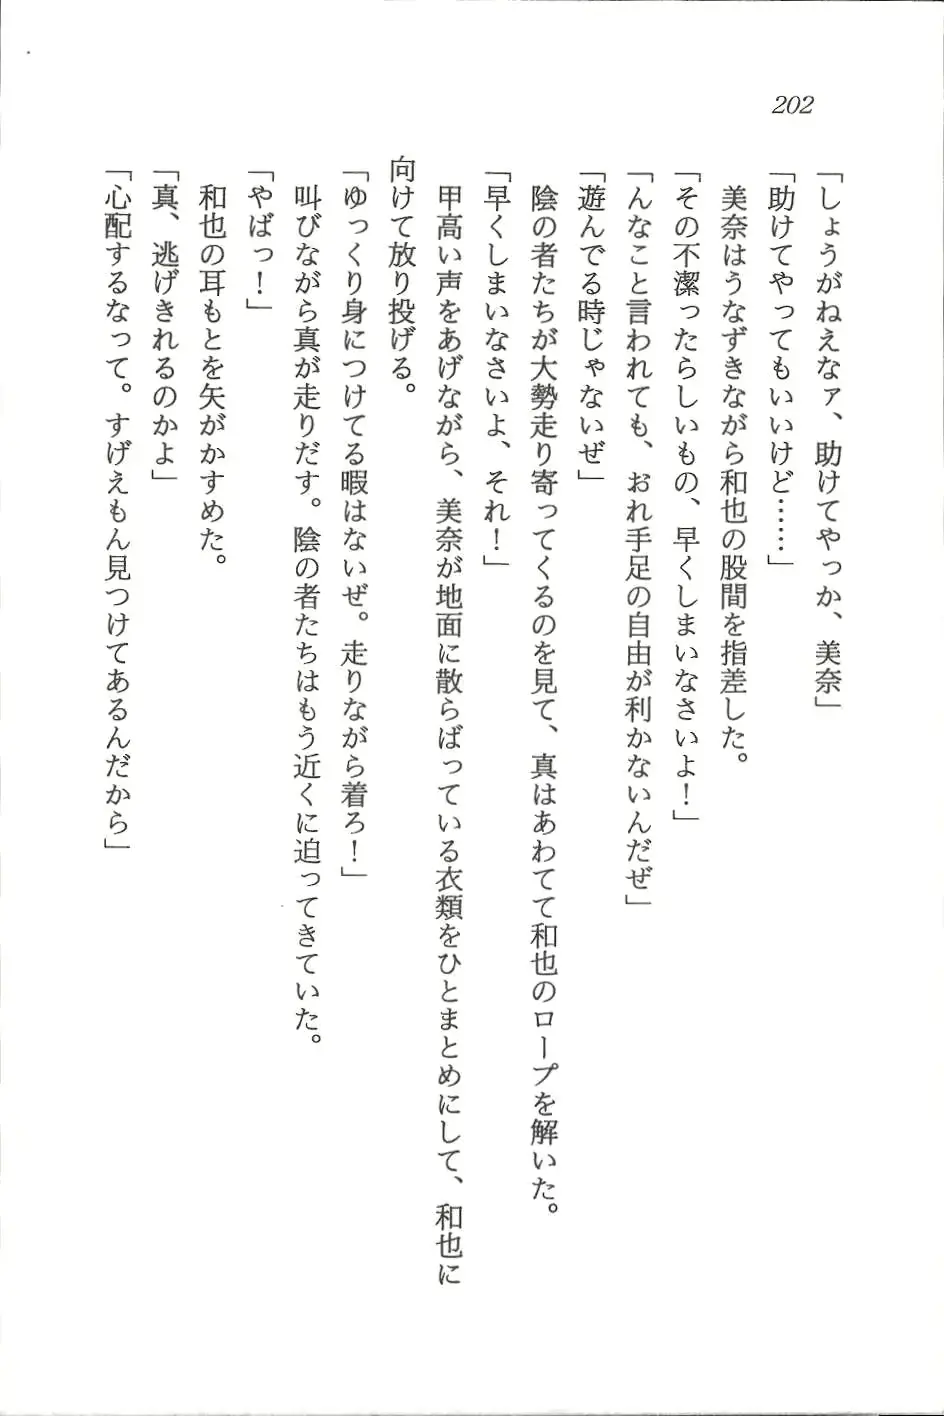 202
「しょうがねえなァ、助けてやっか、美奈」
「助けてやってもいいけど……」
美奈はうなずきながら和也の股間を指差した。
「その不潔ったらしいもの、早くしまいなさいよ！」
「んなこと言われても、おれ手足の自由が利かないんだぜ」
「遊んでる時じゃないぜ」
陰の者たちが大勢走り寄ってくるのを見て、真はあわてて和也のロープを解いた。
「早くしまいなさいよ、それ！」
甲高い声をあげながら、美奈が地面に散らばっている衣類をひとまとめにして、和也に
向けて放り投げる。
「ゆっくり身につけてる暇はないぜ。走りながら着ろ！」
叫びながら真が走りだす。陰の者たちはもう近くに迫ってきていた。
「やばっ！」
和也の耳もとを矢がかすめた。
「真、逃げきれるのかよ」
「心配するなって。すげえもん見つけてあるんだから」